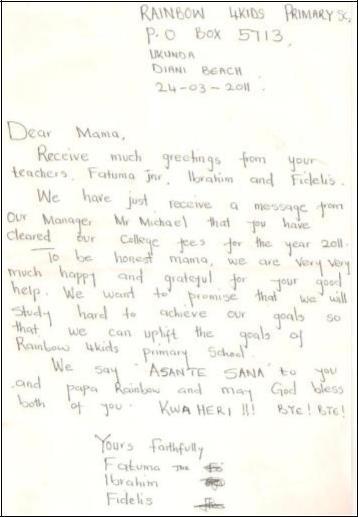 RAINBOW 4KIDS PRIMARY SC,
P.O BOX 5713,
UKUNDA
DIANI BEACH
24-03-2011.
Dear Mama,
Receive much greetings from your
teachers, Fatuma Jnr, Ibrahim and Fidelis.
We have just receive a message from
Our Manager Mr Michael that you have
cleared our College fees for the year 2011.
To be honest mama, we are very very
much happy and grateful for your good
help. We want to promise that we will
study hard to achieve our goals so
that we can uplift the goals of
Rainbow 4kids primary School.
We say "ASANTE SANA" to you
and papa Rainbow and may God bless
both of you. KWAHERI !!! BYE! BYE!
Yours faithfully
Fatuma
Ibrahim
Fidelis